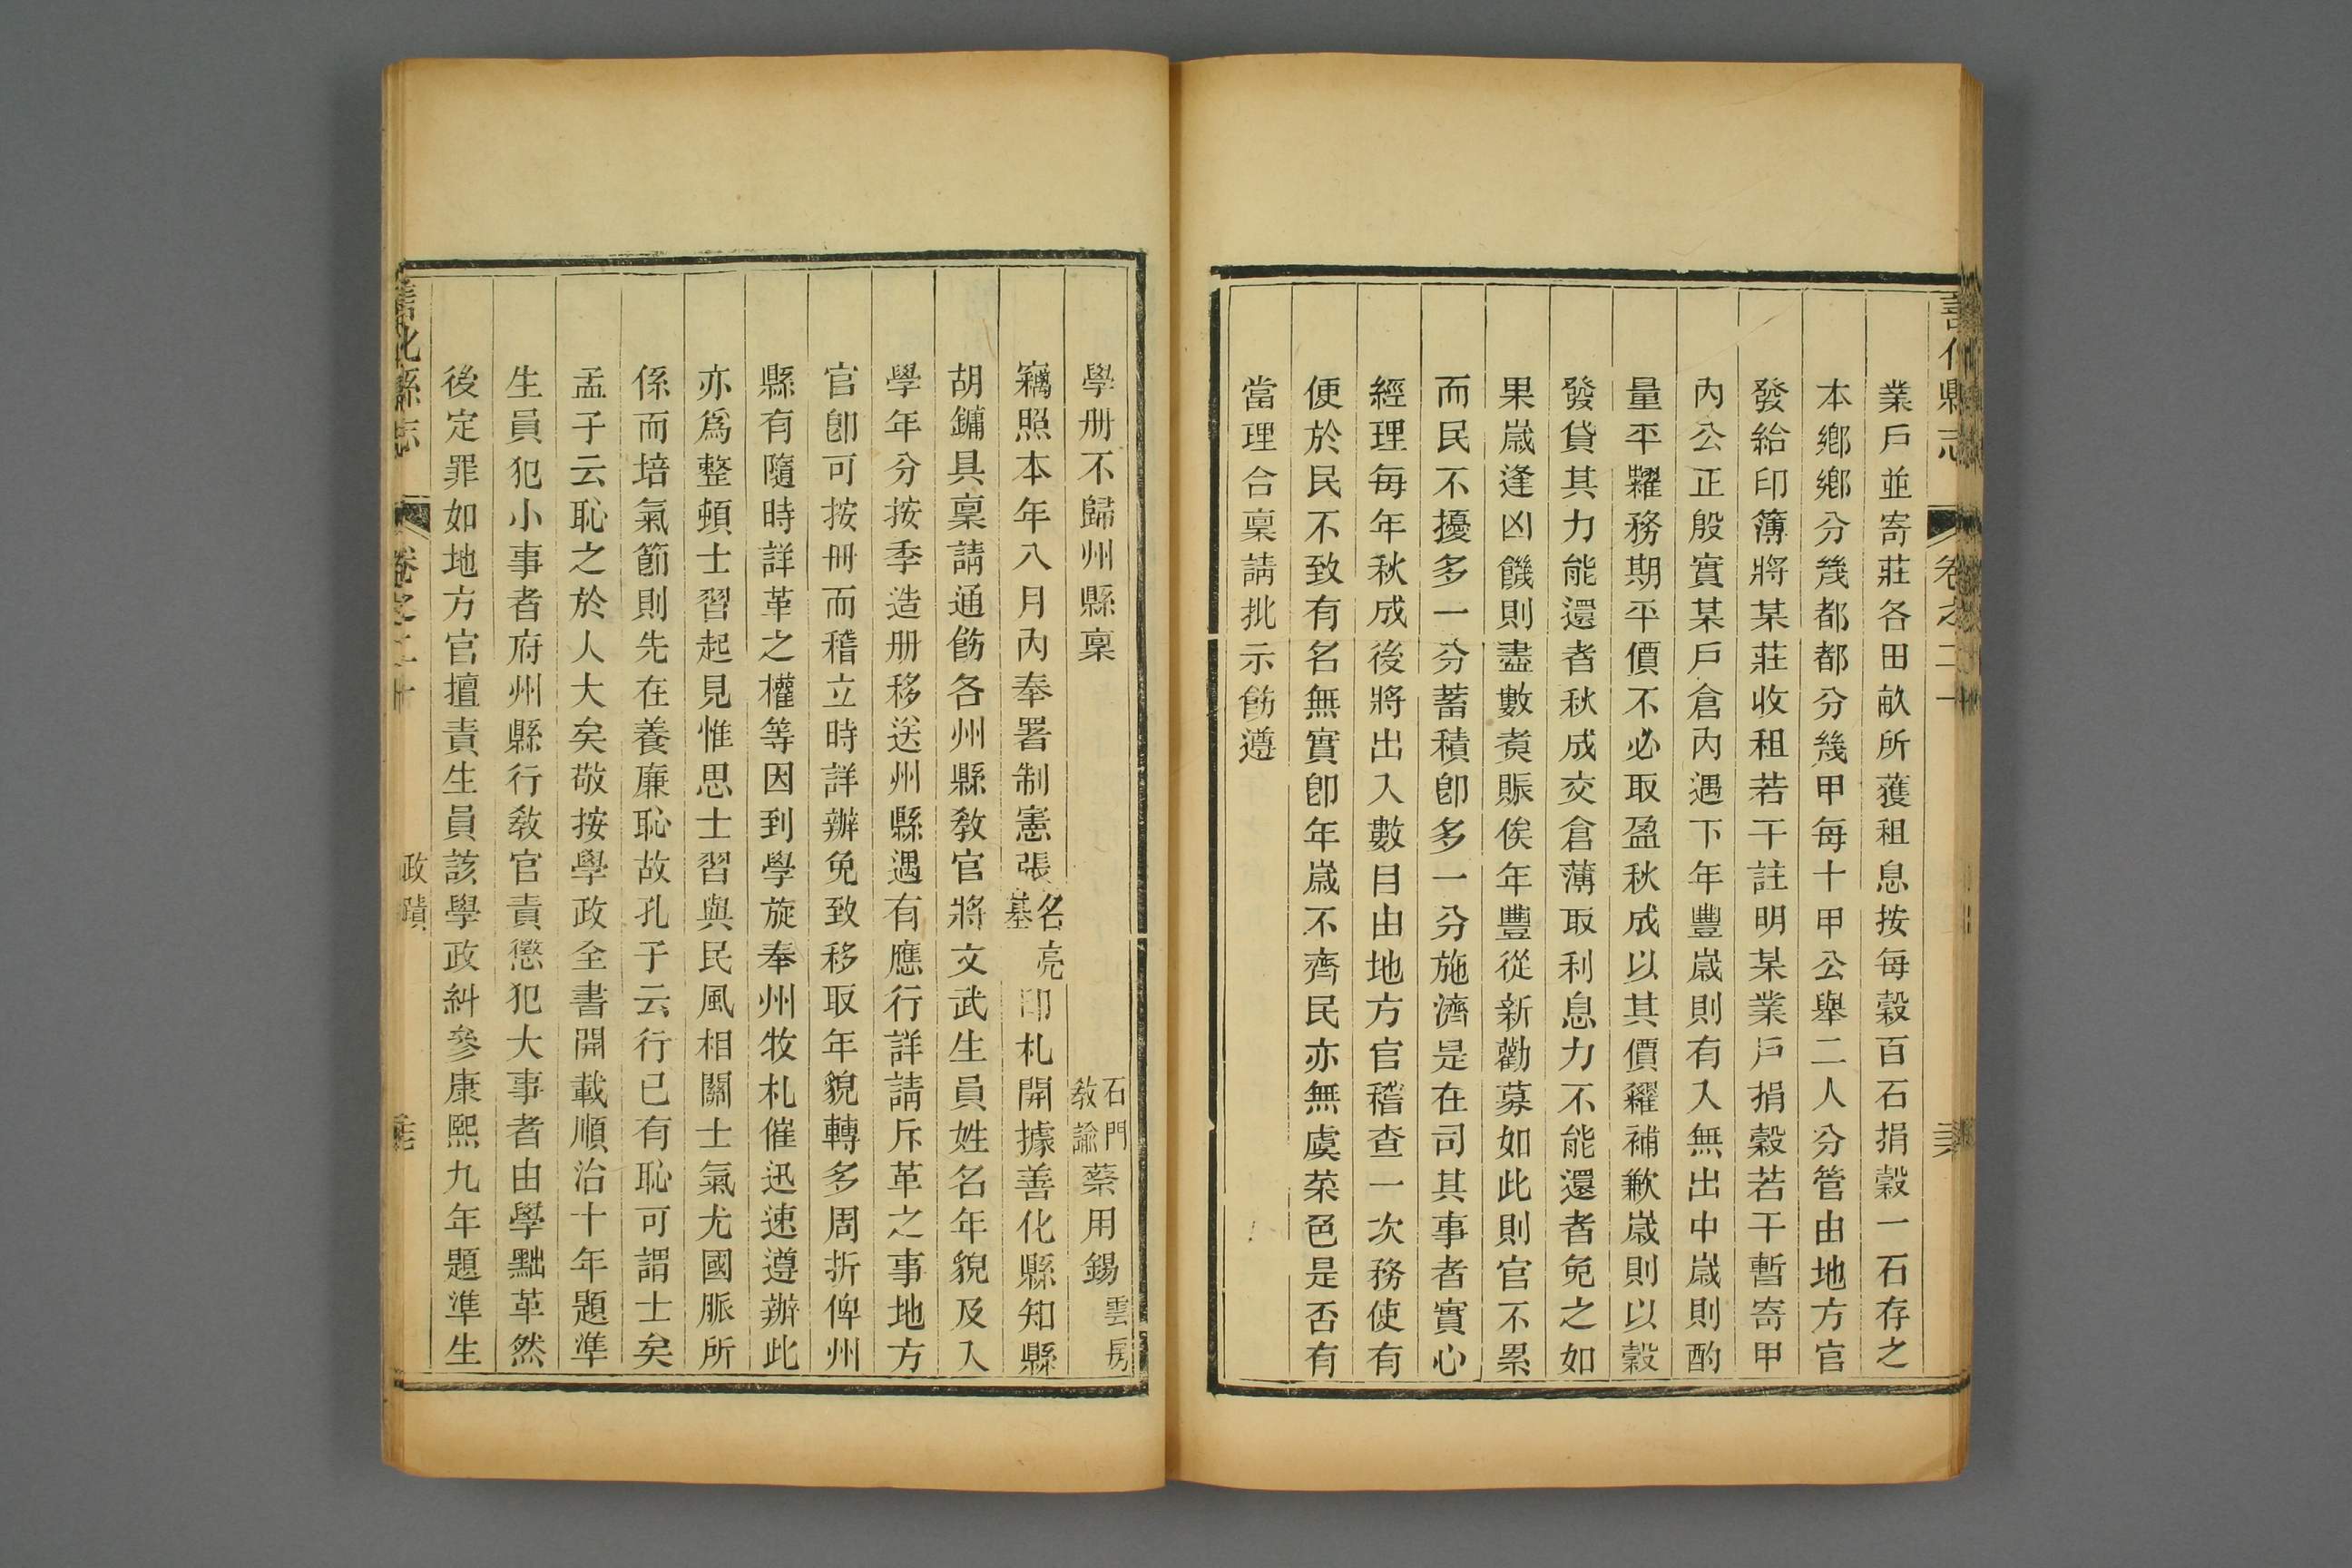 善化縣志 卷之二十
業戶並寄莊各田畝所獲租息按每穀百石捐穀一石存之
本鄉鄉分幾都都分幾甲每十甲公舉二人分管由地方官
發給印簿將某莊收租若干註明某業戶捐穀若干暫寄甲
內公正殷實某戶倉內遇下年豐歲則有入無出中歲則酌
量平糶務期平價不必取盈秋成以其價糴補歉歲則以穀
發貸其力能還者秋成交倉薄取利息力不能還者免之如
果歲逢凶饑則盡數煑賑俟年豐從新勸募如此則官不累
而民不擾多一分蓄積卽多一分施濟是在司其事者實心
經理每年秋成後將出入數目由地方官稽查一次務使有
便於民不致有名無實卽年歲不齊民亦無虞菜色是否有
當理合稟請批示飭遵
學册不歸州縣稟 石門教諭蔡用錫雲房
竊照本年八月內奉署制憲張名亮基印札開據善化縣知縣
胡鏞具稟請通飭各州縣教官將文武生員姓名年貌及入
學年分按季造册移送州縣遇有應行詳請斥革之事地方
官卽可按册而稽立時詳辦免致移取年貌轉多周折俾州
縣有隨時詳革之權等因到學旋奉州牧札催迅速遵辦此
亦爲整頓士習起見惟思士習與民風相關士氣尤國脈所
係而培氣節則先在養廉恥故孔子云行已有恥可謂士矣
孟子云恥之於人大矣敬按學政全書開載順治十年題準
生員犯小事者府州縣行教官責懲犯大事者由學黜革然
後定罪如地方官擅責生員該學政糾參康熙九年題準生
善化縣志 卷之二十 政蹟